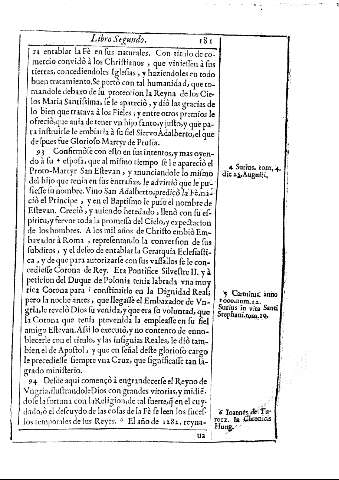 Libro Segundo. 181
ra entablar la Fè en sus naturales. Con titulo de co-
mercio convidò à los Christianos, que viniessen à sus
tierras, concediendoles Iglesias, y haziendoles en todo
buen tratamiento. Se portò con tal humanidad, que to-
mandole debaxo de su proteccion la Reyna de los Cie-
los Maria Santissima, se le apareciò, y diò las gracias de
lo bien que trataba à los Fieles, y entre otros premios le
ofreciò, que avia de tener vn hijo santo, y justo, y que pa-
ra instruirle le embiaria à su fiel Siervo Adalberto, el que
despues fue Glorioso Martyr de Prusia.
93 Confirmòse con esto en sus intentos, y mas oyen-
do à su esposa, que al mismo tiempo se le apareciò el
Proto-Martyr San Estevan, y anunciandole lo mismo
del hijo que tenia en sus entrañas, le advirtiò que le pu-
siesse su nombre. Vino San Adalberto, predicò la Fè, na-
ciò el Principe, y en el Baptismo le puso el nombre de
Estevan. Creciò, y aviendo heredado, llenò con su es-
piritu, y fervor toda la promessa del Cielo, y expectacion
de los hombres. A los mil años de Christo embiò Em-
baxador à Roma, representando la conversion de sus
subditos, y el deseo de entablar la Gerarquia Eclesiasti-
ca, y que para autorizarse con sus vassallos se le con-
cediesse Corona de Rey. Era Pontifice Silvestre II. y à
peticion del Duque de Polonia tenia labrada vna muy
rica Corona para constituirlo en la Dignidad Real;
pero la noche antes, que llegasse el Embaxador de Vn-
gria, le revelò Dios su venida, y que era su voluntad, que
la Corona que tenia prevenida la empleasse en su fiel
amigo Estevan. Assi lo executò, y no contento de enno-
blecerle con el titulo, y las insignias Reales, le diò tam-
bien el de Apostol, y que en señal deste glorioso cargo
le precediesse siempre vna Cruz, que significasse tan sa-
grado ministerio.
94 Desde aqui començò à engrandecerse el Reyno de
Vngria, ilustrandole Dios con grandes vitorias, y midiẽ-
dose la fortuna con la Religion, de tal suerte, q̃ en el cuy-
dado, ò el descuydo de las cosas de la Fè se leen los suces-
sos temporales de sus Reyes. 6 El año de 1282. reyna-
ua
4 Surius, tom. 4.
die 25. Augusti.
5 Carinius, anno
1000. num. 12.
Surius in vita Santi
Stephani
6 Ioannes de Tu-
rocz. in Chronicis
Hung.